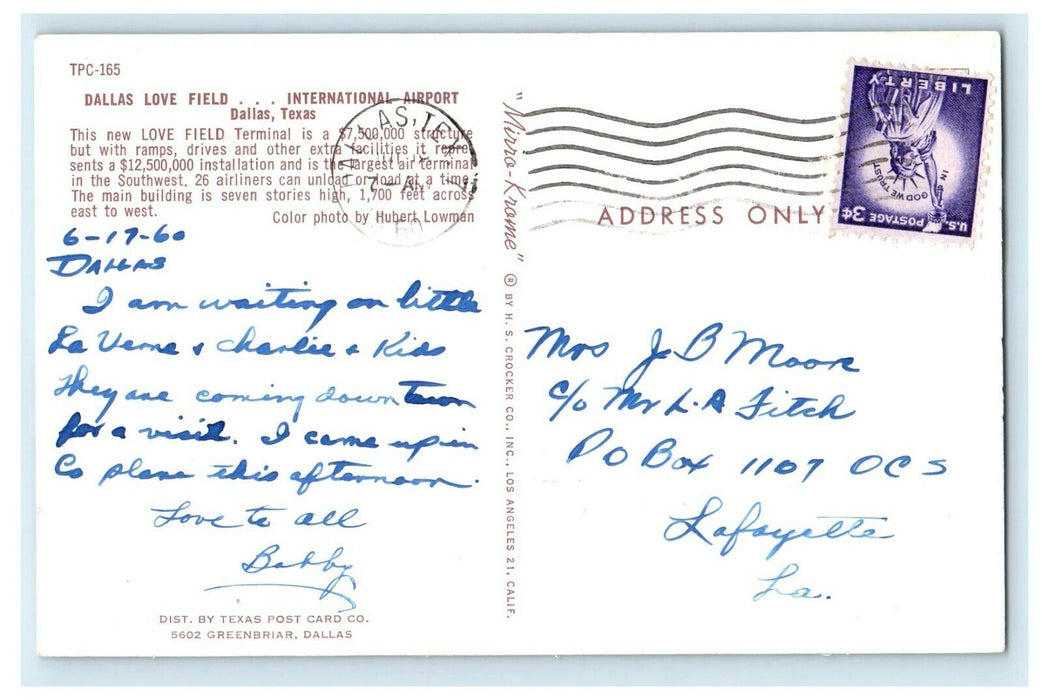 TPC-165
DALLAS LOVE FIELD . . . INTERNATIONAL AIRPORT
Dallas, Texas
This new LOVE FIELD Terminal is a $7,500,000 structure
but with ramps, drives and other extra facilities it repre-
sents a $12,500,000 installation and is the largest air terminal
in the Southwest. 26 airliners can unload or load at a time.
The main building is seven stories high, 1,700 feet across
east to west.
Color photo by Hubert Lowman
6-17-60
DALLAS
I am waiting on little
La Verne & Charlie & Kids
They are coming down town
for a visit. I came up in
Co plane this afternoon.
Love to all
Bobby
DIST. BY TEXAS POST CARD CO.
5602 GREENBRIAR, DALLAS
"Mirro-Krome" ® BY H. S. CROCKER CO., INC., LOS ANGELES 21, CALIF.
AS, TEX
AM
60
ADDRESS ONLY
LIBERTY
IN GOD WE TRUST
U.S. POSTAGE 3¢
Mrs J B Moore
c/o Mr L.A Fitch
PO Box 1107 OCS
Lafayette
La.